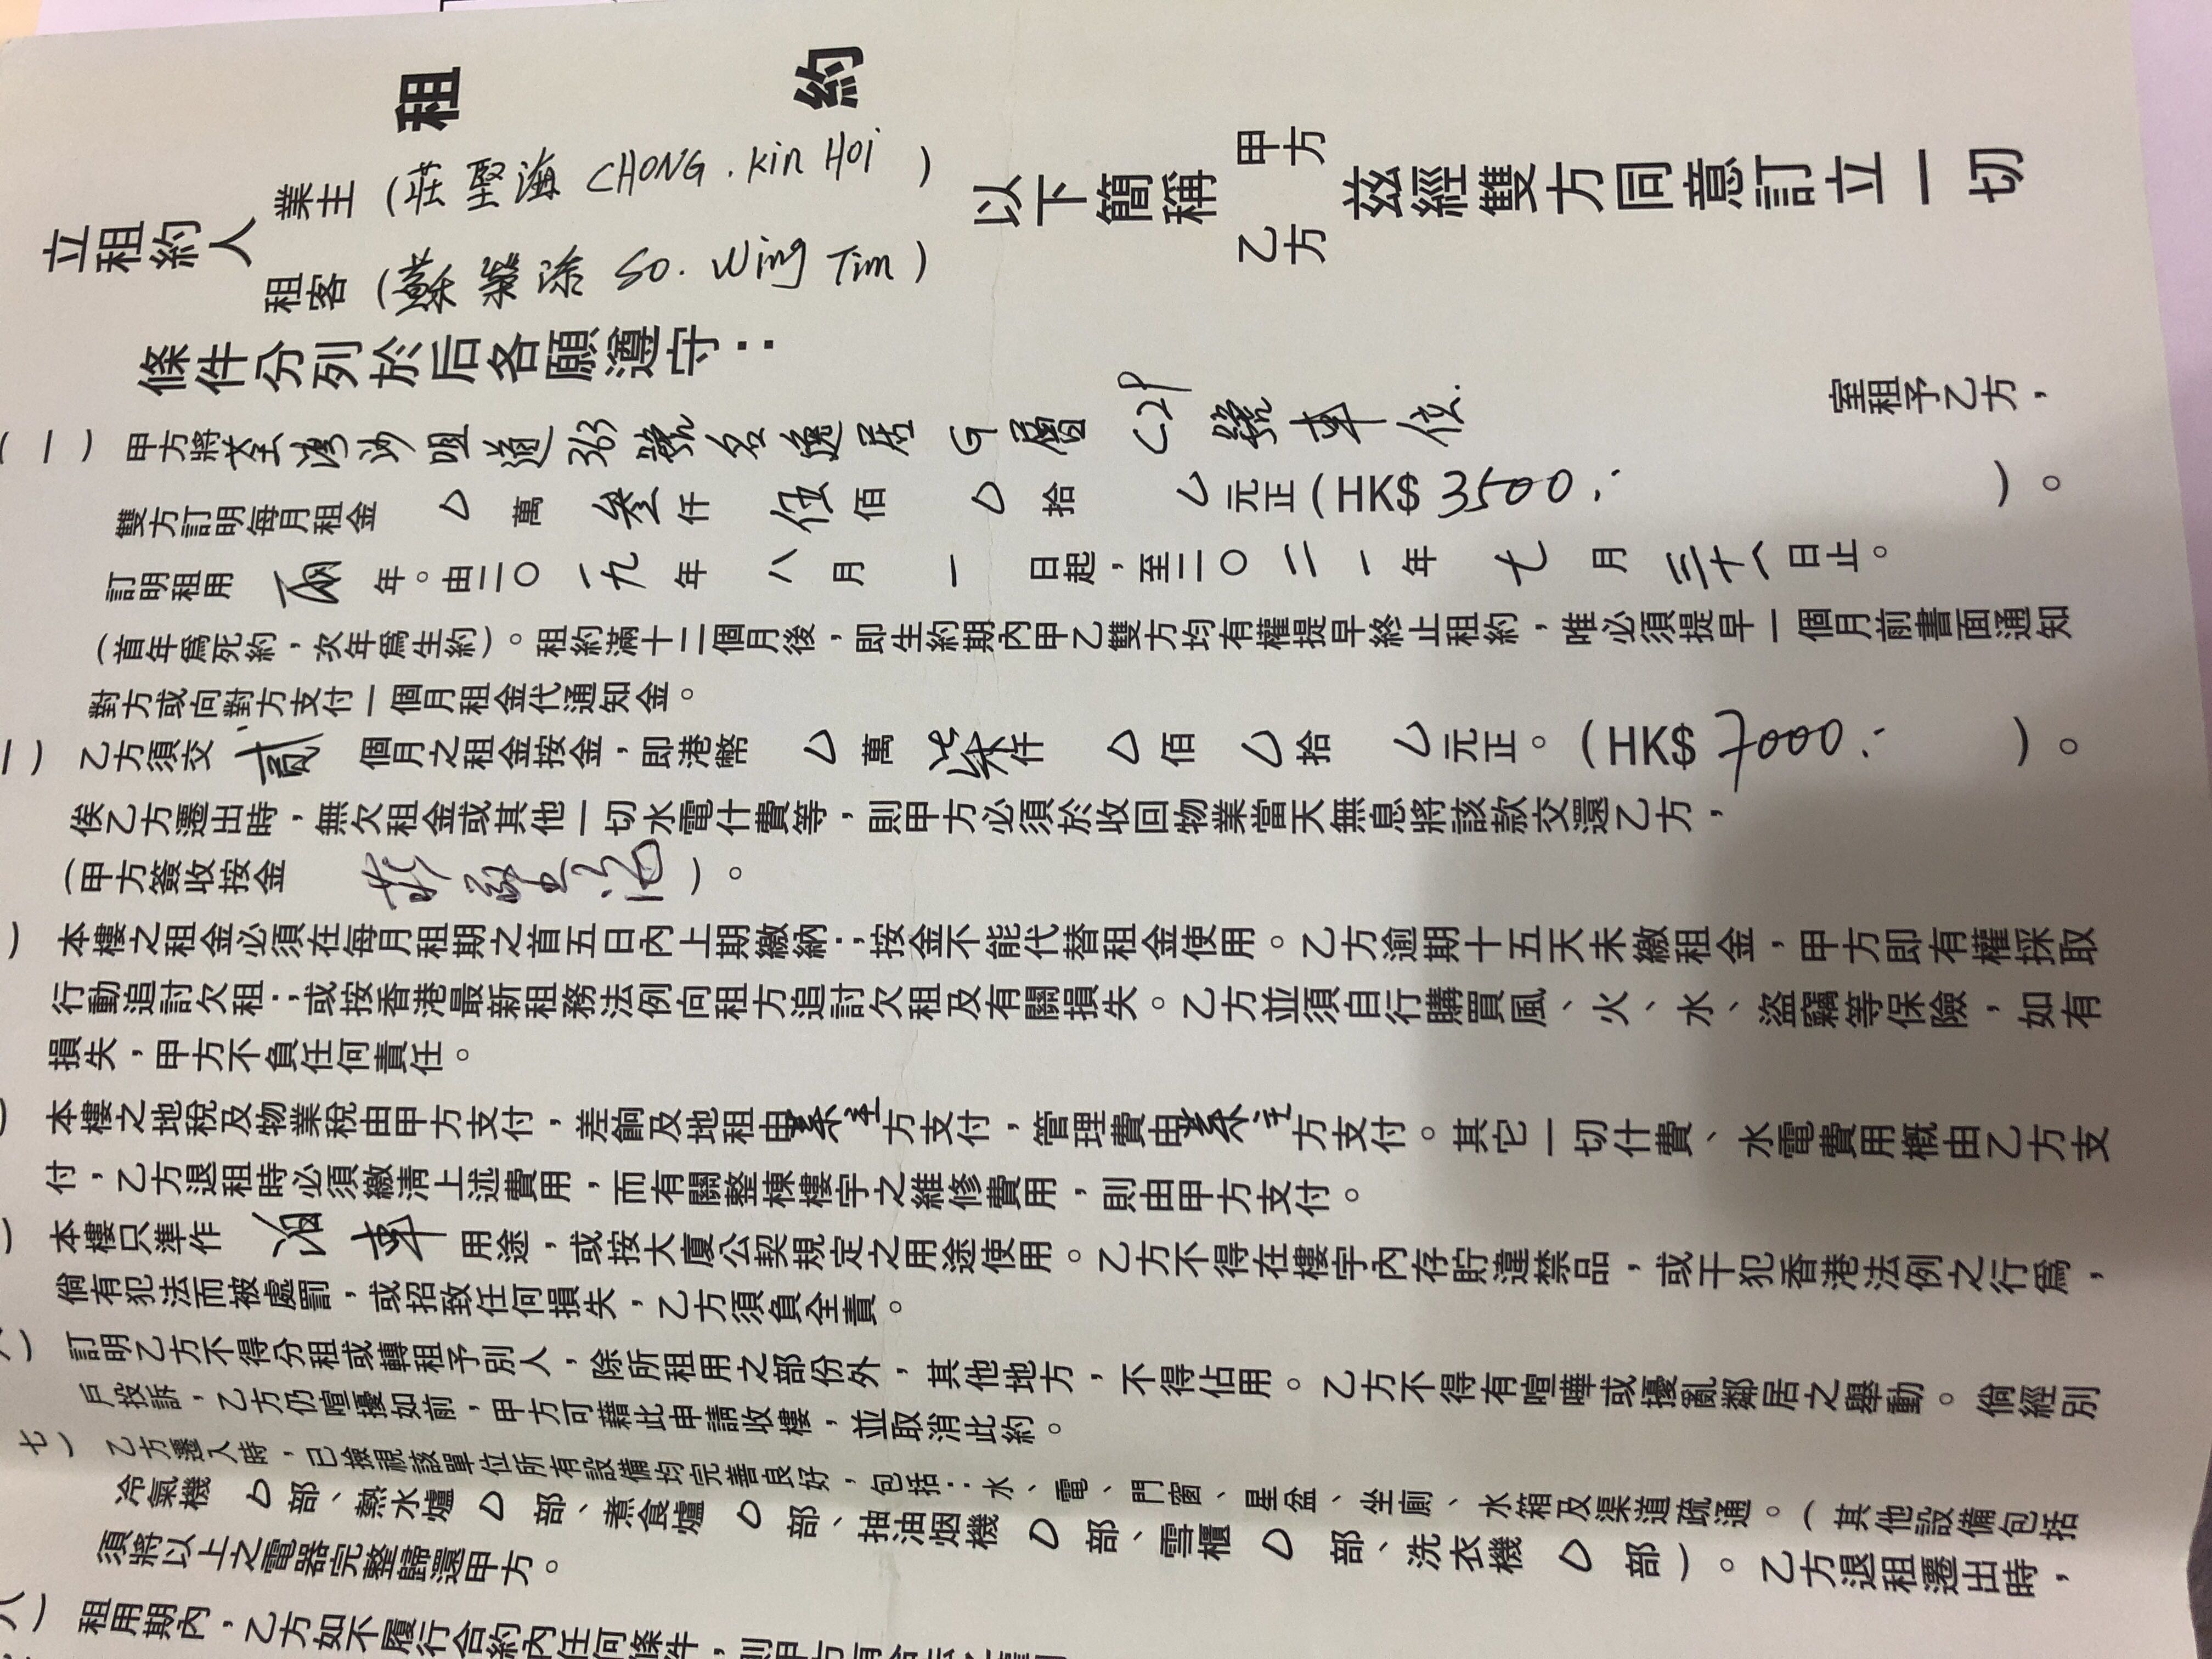 租約
立租約人
業主(莊堅海 CHONG. Kin Hoi)
租客(蘇 So. Wing Tim)
以下簡稱甲方乙方茲經雙方同意訂立一切
條件分列於后各願遵守:
(一)甲方將荃灣沙咀道363號名逸居 G層 C29 號車位. 室租予乙方,
雙方訂明每月租金 △ 萬 叁 仟 伍 佰 △ 拾 △ 元正(HK$ 3500.- )。
訂明租用 兩 年。由二〇一九年 八 月 一 日起,至二〇二一年 七 月 三十一日止。
(首年爲死約,次年爲生約)。租約滿十二個月後,即生約期內甲乙雙方均有權提早終止租約,唯必須提早一個月前書面通知
對方或向對方支付一個月租金代通知金。
乙方須交 貳 個月之租金按金,即港幣 △ 萬 柒 仟 △ 佰 △ 拾 △ 元正。(HK$ 7000.- )。
俟乙方遷出時,無欠租金或其他一切水電什費等,則甲方必須於收回物業當天無息將該款交還乙方,
(甲方簽收按金 莊堅海)。
本樓之租金必須在每月租期之首五日內上期繳納;按金不能代替租金使用。乙方逾期十五天未繳租金,甲方即有權採取
行動追討欠租;或按香港最新租務法例向租方追討欠租及有關損失。乙方並須自行購買風、火、水、盜竊等保險,如有
損失,甲方不負任何責任。
本樓之地稅及物業稅由甲方支付,差餉及地租由業主方支付,管理費由業主方支付。其它一切什費、水電費用概由乙方支
付,乙方退租時必須繳清上述費用,而有關整棟樓宇之維修費用,則由甲方支付。
本樓只準作 泊車 用途,或按大廈公契規定之用途使用。乙方不得在樓宇內存貯違禁品,或干犯香港法例之行爲,
倘有犯法而被處罰,或招致任何損失,乙方須負全責。
訂明乙方不得分租或轉租予別人,除所租用之部份外,其他地方,不得佔用。乙方不得有喧嘩或擾亂鄰居之舉動。倘經別
戶投訴,乙方仍喧擾如前,甲方可藉此申請收樓,並取消此約。
七)乙方遷入時,已撿視該單位所有設備均完善良好,包括:水、電、門窗、星盆、坐廁、水箱及渠道疏通。(其他設備包括
冷氣機 △ 部、熱水爐 △ 部、煮食爐 △ 部、抽油烟機 △ 部、雪櫃 △ 部、洗衣機 △ 部)。乙方退租遷出時,
須將以上之電器完整歸還甲方。
八)租用期內,乙方如不履行合約內任何條件,則甲方有